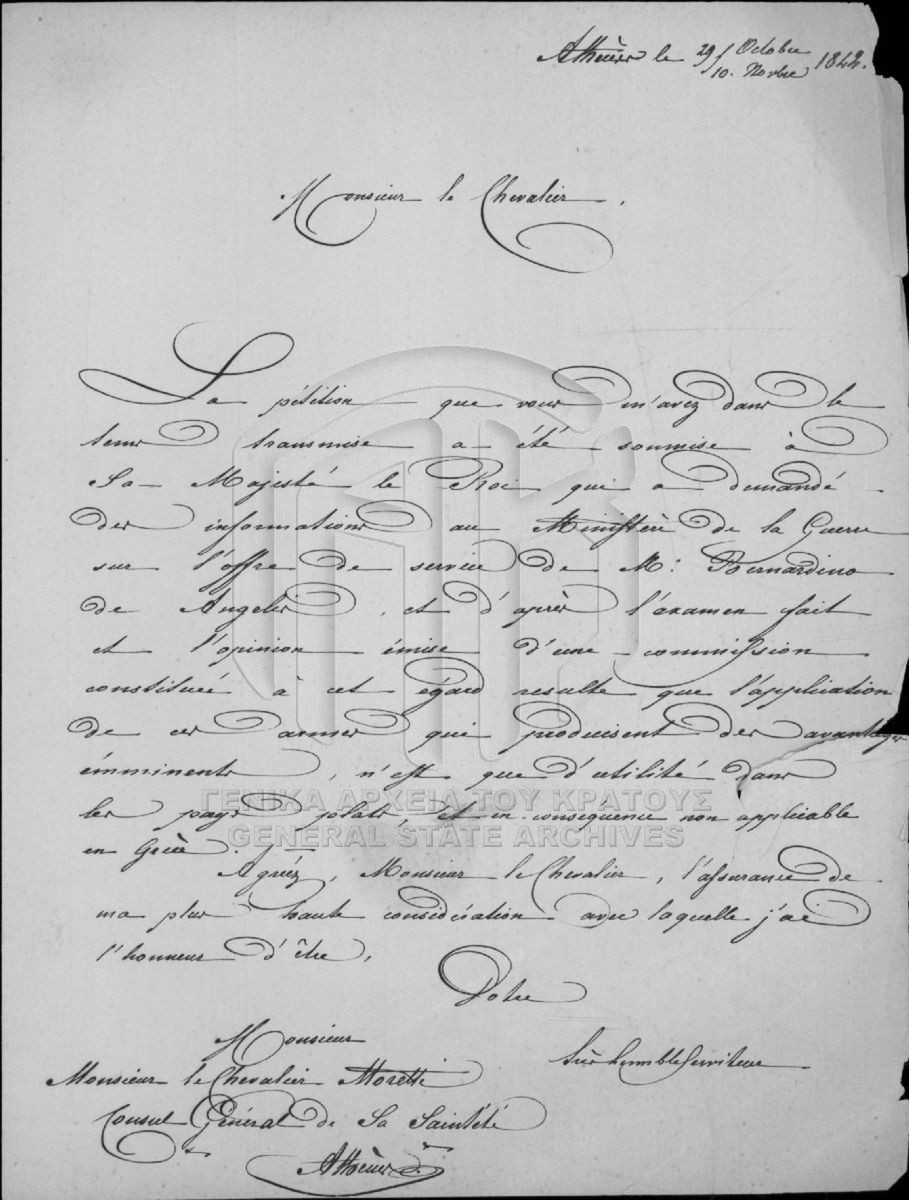 Athènes le 29/10. Octobre Novbre 1842.
Monsieur le Chevalier.
La pétition que vous m'avez dans le
tems transmise a été soumise à
Sa Majesté le Roi qui a demandé
des informations au Ministère de la Guerre
sur l'offre de service de Mr: Bernardino
de Angelis, et d'après l'examen fait
et l'opinion émise d'une commission
constituée à cet égard resulte que l'application
de ces armes qui produisent des avantages
émminents, n'est que d'utilité dans
les pays plats, et en consequence non applicable
en Grèce.
Agréez, Monsieur le Chevalier, l'assurance de
ma plus haute considération avec laquelle j'ai
l'honneur d'être,
Votre
Monsieur
très humble Serviteur
Monsieur le Chevalier Moretti
Consul Général de Sa Sainteté
à
Athènes
ΓΕΝΙΚΑ ΑΡΧΕΙΑ ΤΟΥ ΚΡΑΤΟΥΣ
GENERAL STATE ARCHIVES